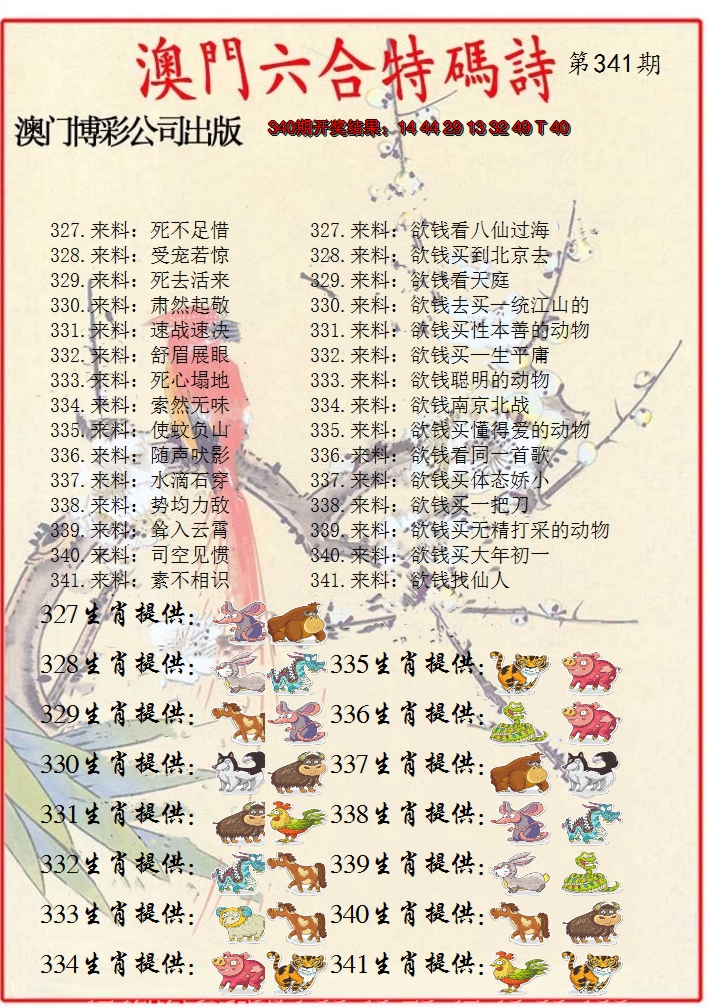 澳門六合特碼詩 第341期
澳门博彩公司出版 340期开奖结果：14 44 29 13 32 49 T 40
327.来料：死不足惜 327.来料：欲钱看八仙过海
328.来料：受宠若惊 328.来料：欲钱买到北京去
329.来料：死去活来 329.来料：欲钱看天庭
330.来料：肃然起敬 330.来料：欲钱去买一统江山的
331.来料：速战速决 331.来料：欲钱买性本善的动物
332.来料：舒眉展眼 332.来料：欲钱买一生平庸
333.来料：死心塌地 333.来料：欲钱聪明的动物
334.来料：索然无味 334.来料：欲钱南京北战
335.来料：使蚊负山 335.来料：欲钱买懂得爱的动物
336.来料：随声吠影 336.来料：欲钱看同一首歌
337.来料：水滴石穿 337.来料：欲钱买体态娇小
338.来料：势均力敌 338.来料：欲钱买一把刀
339.来料：耸入云霄 339.来料：欲钱买无精打采的动物
340.来料：司空见惯 340.来料：欲钱买大年初一
341.来料：素不相识 341.来料：欲钱找仙人
327生肖提供：
328生肖提供： 335生肖提供：
329生肖提供： 336生肖提供：
330生肖提供： 337生肖提供：
331生肖提供： 338生肖提供：
332生肖提供： 339生肖提供：
333生肖提供： 340生肖提供：
334生肖提供： 341生肖提供：